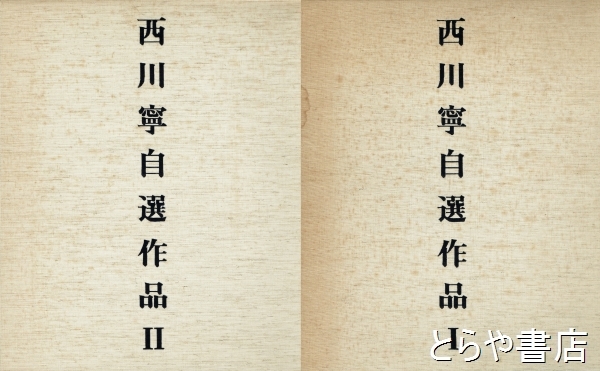 西川寧自選作品Ⅰ
西川寧自選作品Ⅱ
とらや書店